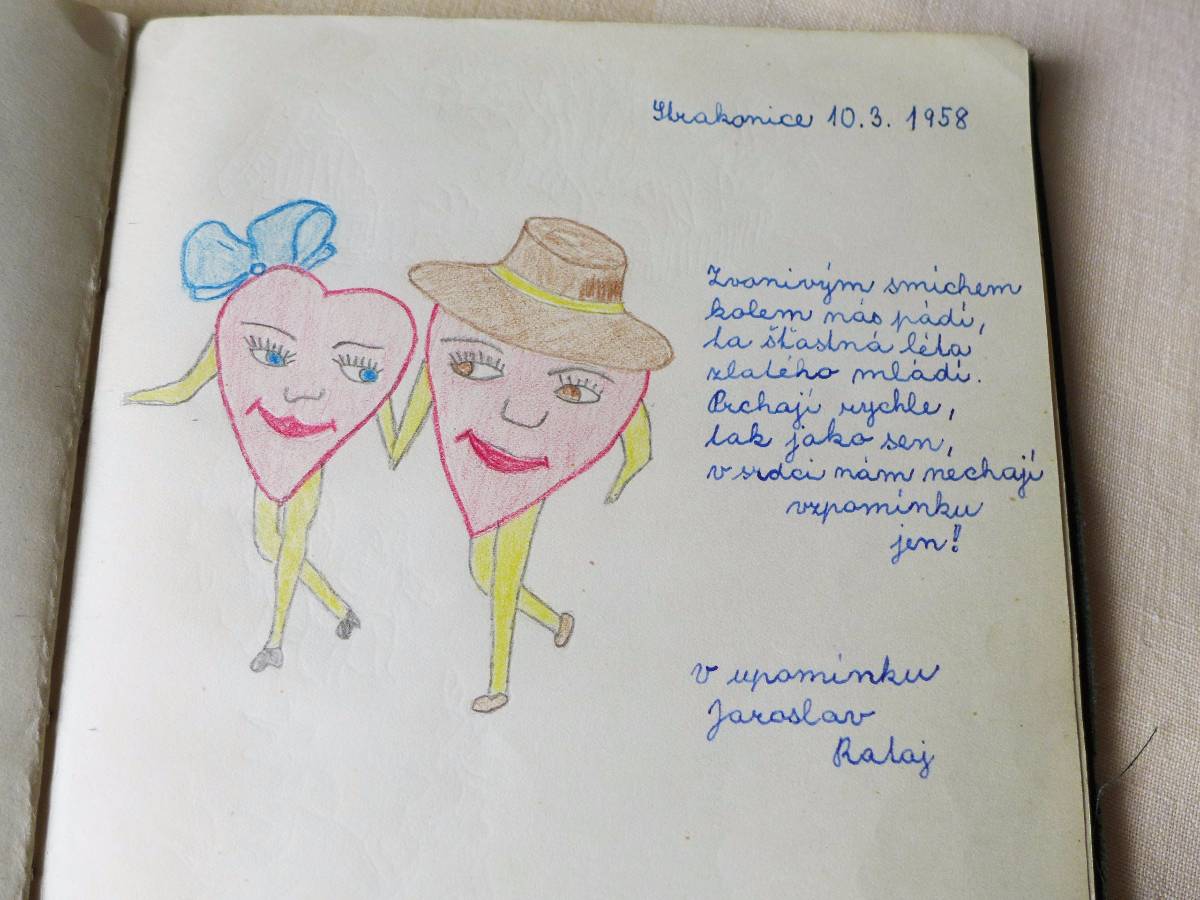 Strakonice 10.3. 1958
Zvonivým smíchem
kolem nás pádí,
ta šťastná léta
zlatého mládí.
Prchají rychle,
tak jako sen,
v srdci nám nechají
vzpomínku
jen!
V upomínku
Jaroslav
Rataj